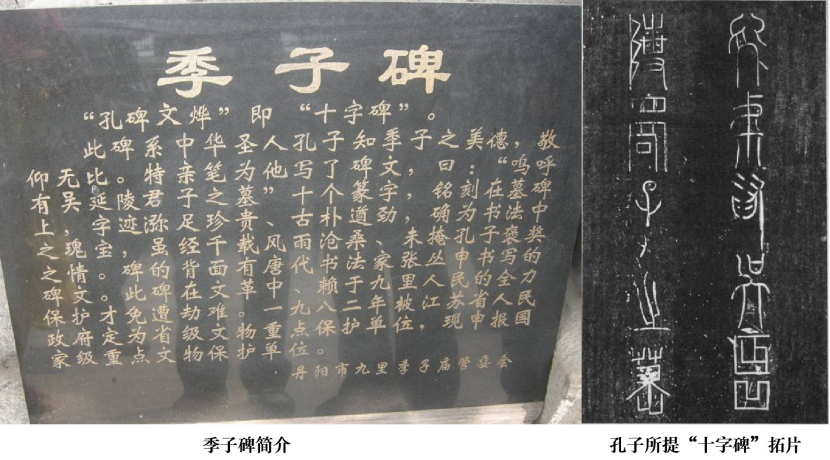 季子碑
“孔碑文烨”即“十字碑”。
此碑系中华圣人孔子知季子之美德,敬
仰无比。特亲笔为他写了碑文,曰:“呜呼
有吴延陵君子之墓”十个篆字,铭刻在墓碑
上,字迹弥足珍贵、古朴遒劲、确为书法中
之瑰宝。虽经千载风雨沧桑、未掩孔子褒奖
之情。碑的背面有唐代书法家张丛申书写的
碑文。此碑在文革中、赖于九里人民的全力
保护才免遭劫难。一九八二年被江苏省人民
政府定为省级文物重点保护单位,现申报国
家级重点文物保护单位。
丹阳市九里季子庙管委会
呜呼有吴延
陵君子之墓
季子碑简介
孔子所提“十字碑”拓片